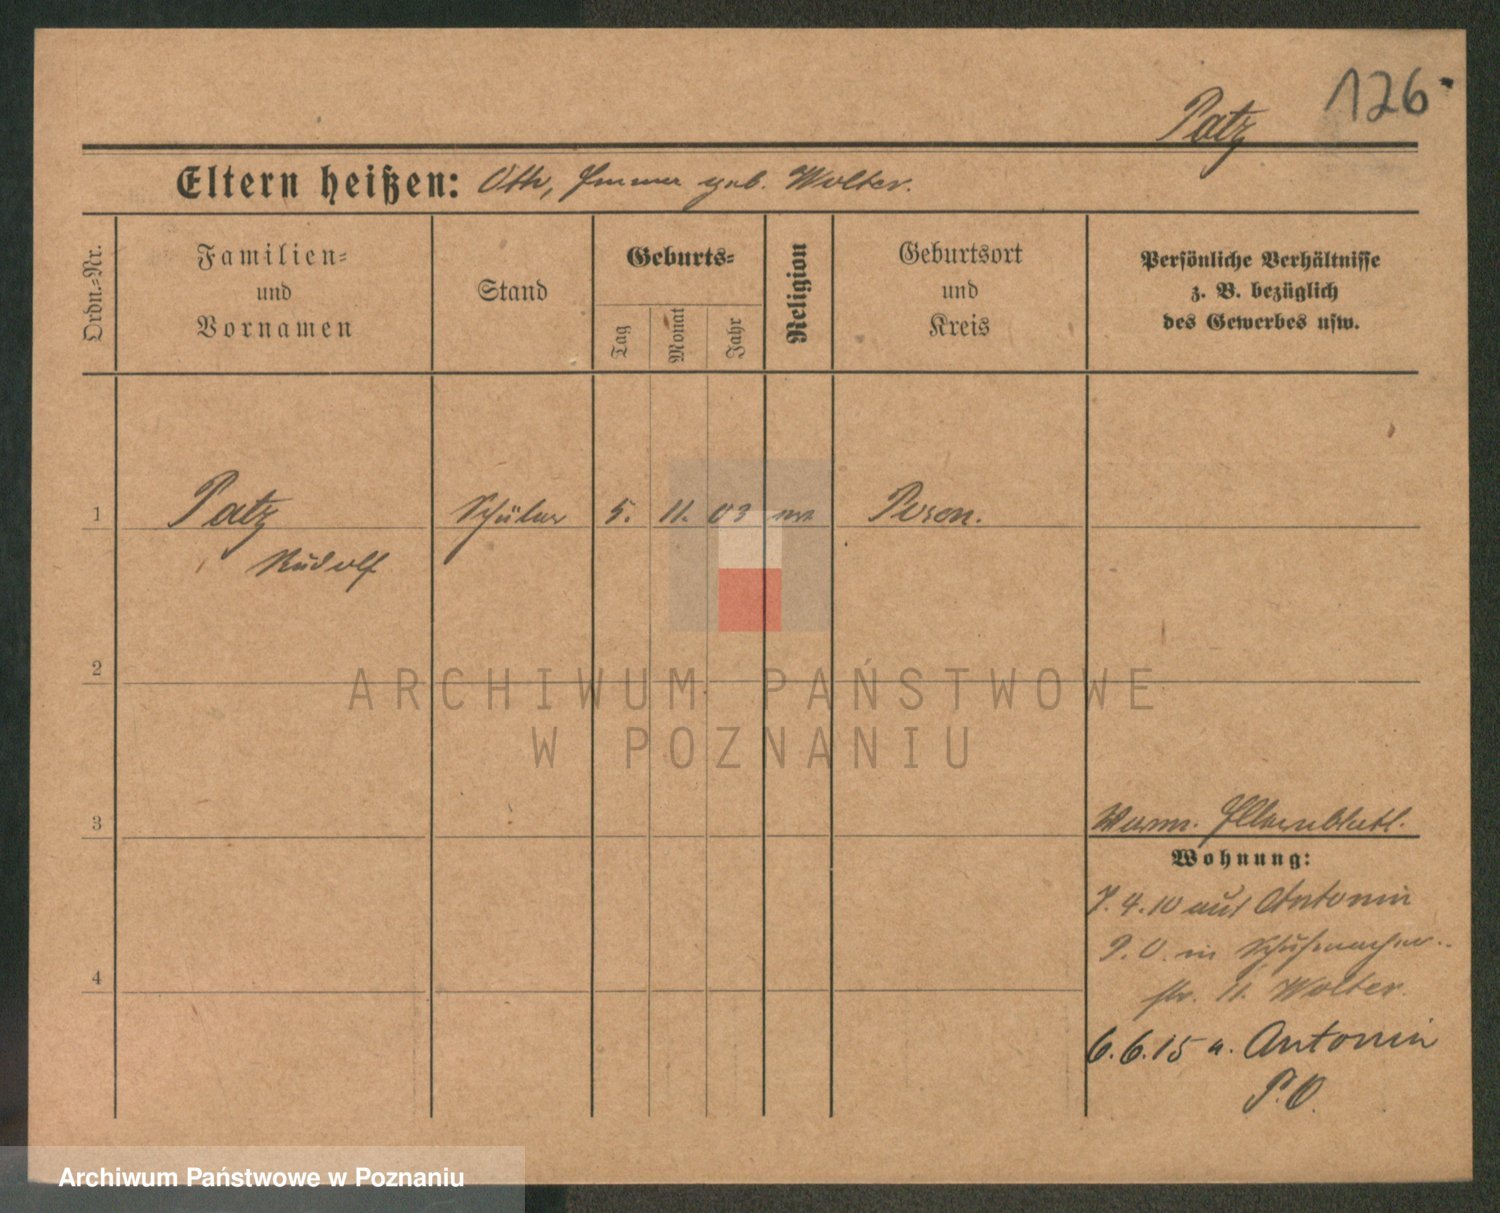 126.
Patz
Eltern heißen: Otto, Emma geb. Wolter.
Ordn.-Nr.
Familien-
und
Vornamen
Stand
Geburts-
Tag
Monat
Jahr
Religion
Geburtsort
und
Kreis
Persönliche Verhältnisse
z. B. bezüglich
des Gewerbes usw.
1 Patz Schüler 5. 11. 03 Posen.
Rudolf
2
3
Wohnung:
7. 4. 10 aus Antonin
P. O. in Schuhmacher-
str. 11. Wolter.
6. 6. 15 a. Antonin
P. O.
4
ARCHIWUM PAŃSTWOWE
W POZNANIU
Archiwum Państwowe w Poznaniu